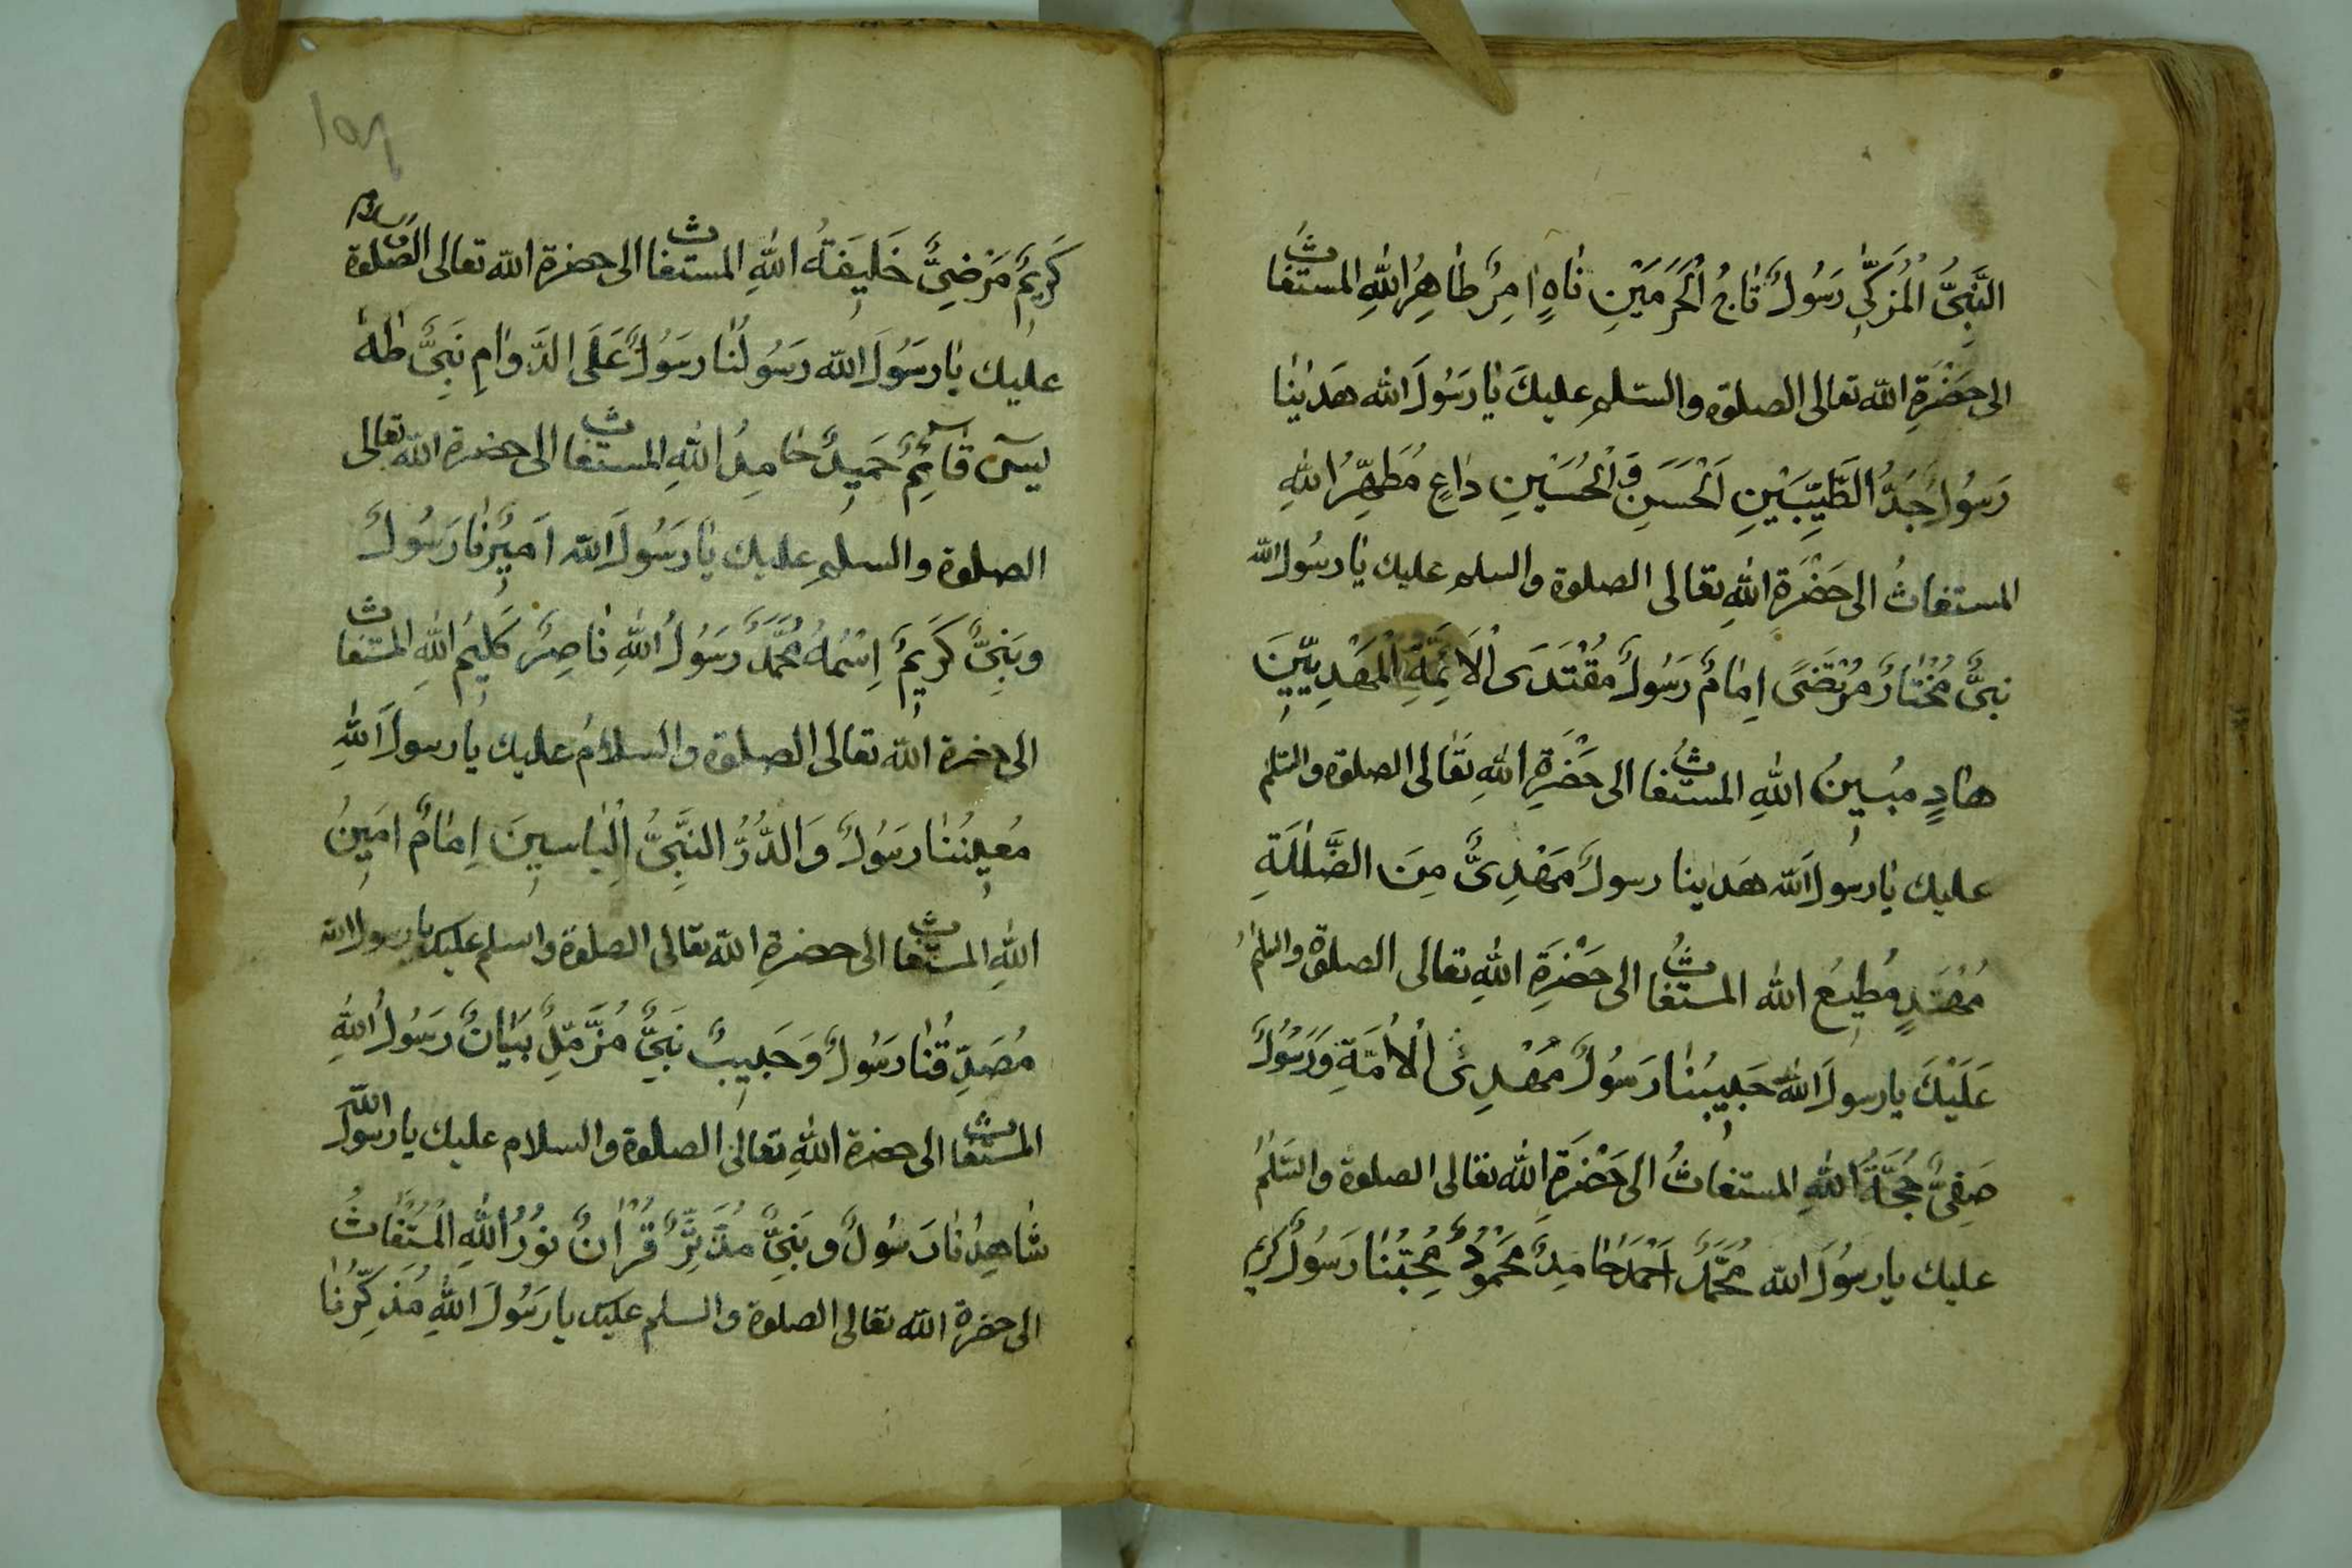 النَّبِىُّ الْمُزَكِّى رَسُولٌ تَاجُ الْحَرَمَيْنِ نَاهٍ اٰمِرٌ طَاهِرُ اللهِ المستغاث
الى حَضْرَةِ الله تعالى الصلوة والسّلم عليكَ يَا رَسُولَ الله هَدَينَا
رَسُولٌ جَدُّ الطَّيِّبَيْنِ اَلْحَسَنِ وَالْحُسَيْنِ دَاعٍ مُطَهِّرُ اللهِ
المستغاثُ الى حَضْرَةِ اللهِ تعالى الصلوة والسلم عليك يَا رسُولَ الله
نبىٌّ مُخْتَارٌ مُرْتَضًى اِمَامٌ رَسُولٌ مُقْتَدَى الْاَئِمَّةِ الْمَهْدِيِّينَ
هَادٍ مُبِينُ اللهِ المستغاثُ الى حَضْرَةِ اللهِ تَعَالى الصلوة والسّلم
عليك يَا رسُولَ الله هَدَينا رسولٌ مَهْدِىٌّ مِنَ الضَّلٰلَةِ
مُهْتَدٍ مُطِيعُ الله المستغاثُ الى حَضْرَةِ اللهِ تعالى الصلوة والسلمُ
عَلَيْكَ يا رسولَ الله حَبِيبُنَا رَسُولٌ مَهْدِىُ الْاُمَّةِ وَرَسُولٌ
صَفِىٌّ حُجَّةُ اللهِ المستغاثُ الى حَضْرَةِ الله تعالى الصلوة والسَّلٰمُ
عليك يا رسُولَ الله مُحَمَّدٌ اَحْمَدُ حَامِدٌ مَحْمُودٌ مُحِبُّنَا رَسُولٌ كريم
كَرِيمٌ مَرْضِىٌّ خَلِيفَةُ اللهِ المستغاث الى حضرة الله تعالى الصلوة والسلم
عليك يَا رَسُولَ الله رَسُولُنَا رَسُولٌ عَلَى الدَّوَامِ نَبِىٌّ طٰهٰ
يٰسٓ قَائِمٌ حَمِيدٌ حَامِدُ اللهِ المستغاث الى حضرة الله تعالى
الصلوة والسلم عليك يَا رَسُولَ الله اَمِيرُنَا رَسُولٌ
ونَبِىٌّ كَرِيمٌ اِسْمُهُ مُحَمَّدٌ رَسُولُ اللهِ نَاصِرٌ كَلِيمُ اللهِ المستغاث
الى حضرة الله تعالى الصلوة والسلامُ عليك يا رسولَ اللهِ
مُعِينُنَا رَسُولٌ وَالدُّرُّ النَّبِىُّ اِلْيَاسِينَ اِمَامٌ اَمِينُ
اللهِ المستغاث الى حضرةِ الله تعالى الصلوة واسلم عليك يا رسول الله
مُصَدِّقُنَا رَسُولٌ وَحَبِيبٌ نَبِىٌّ مُزَّمِّلٌ بَيَانٌ رَسُولُ اللهِ
المستغاث الى حضرة اللهِ تعالى الصلوة والسلام عليك يا رسولَ الله
شَاهِدُنَا رَسُولٌ ونَبِىٌّ مُدَّثِّرٌ قُرْاٰنٌ نُورُ اللهِ الْمُسْتَغَاثُ
الى حضرة الله تعالى الصلوة والسلم عليك يا رَسُولَ اللهِ مُذَكِّرُنَا